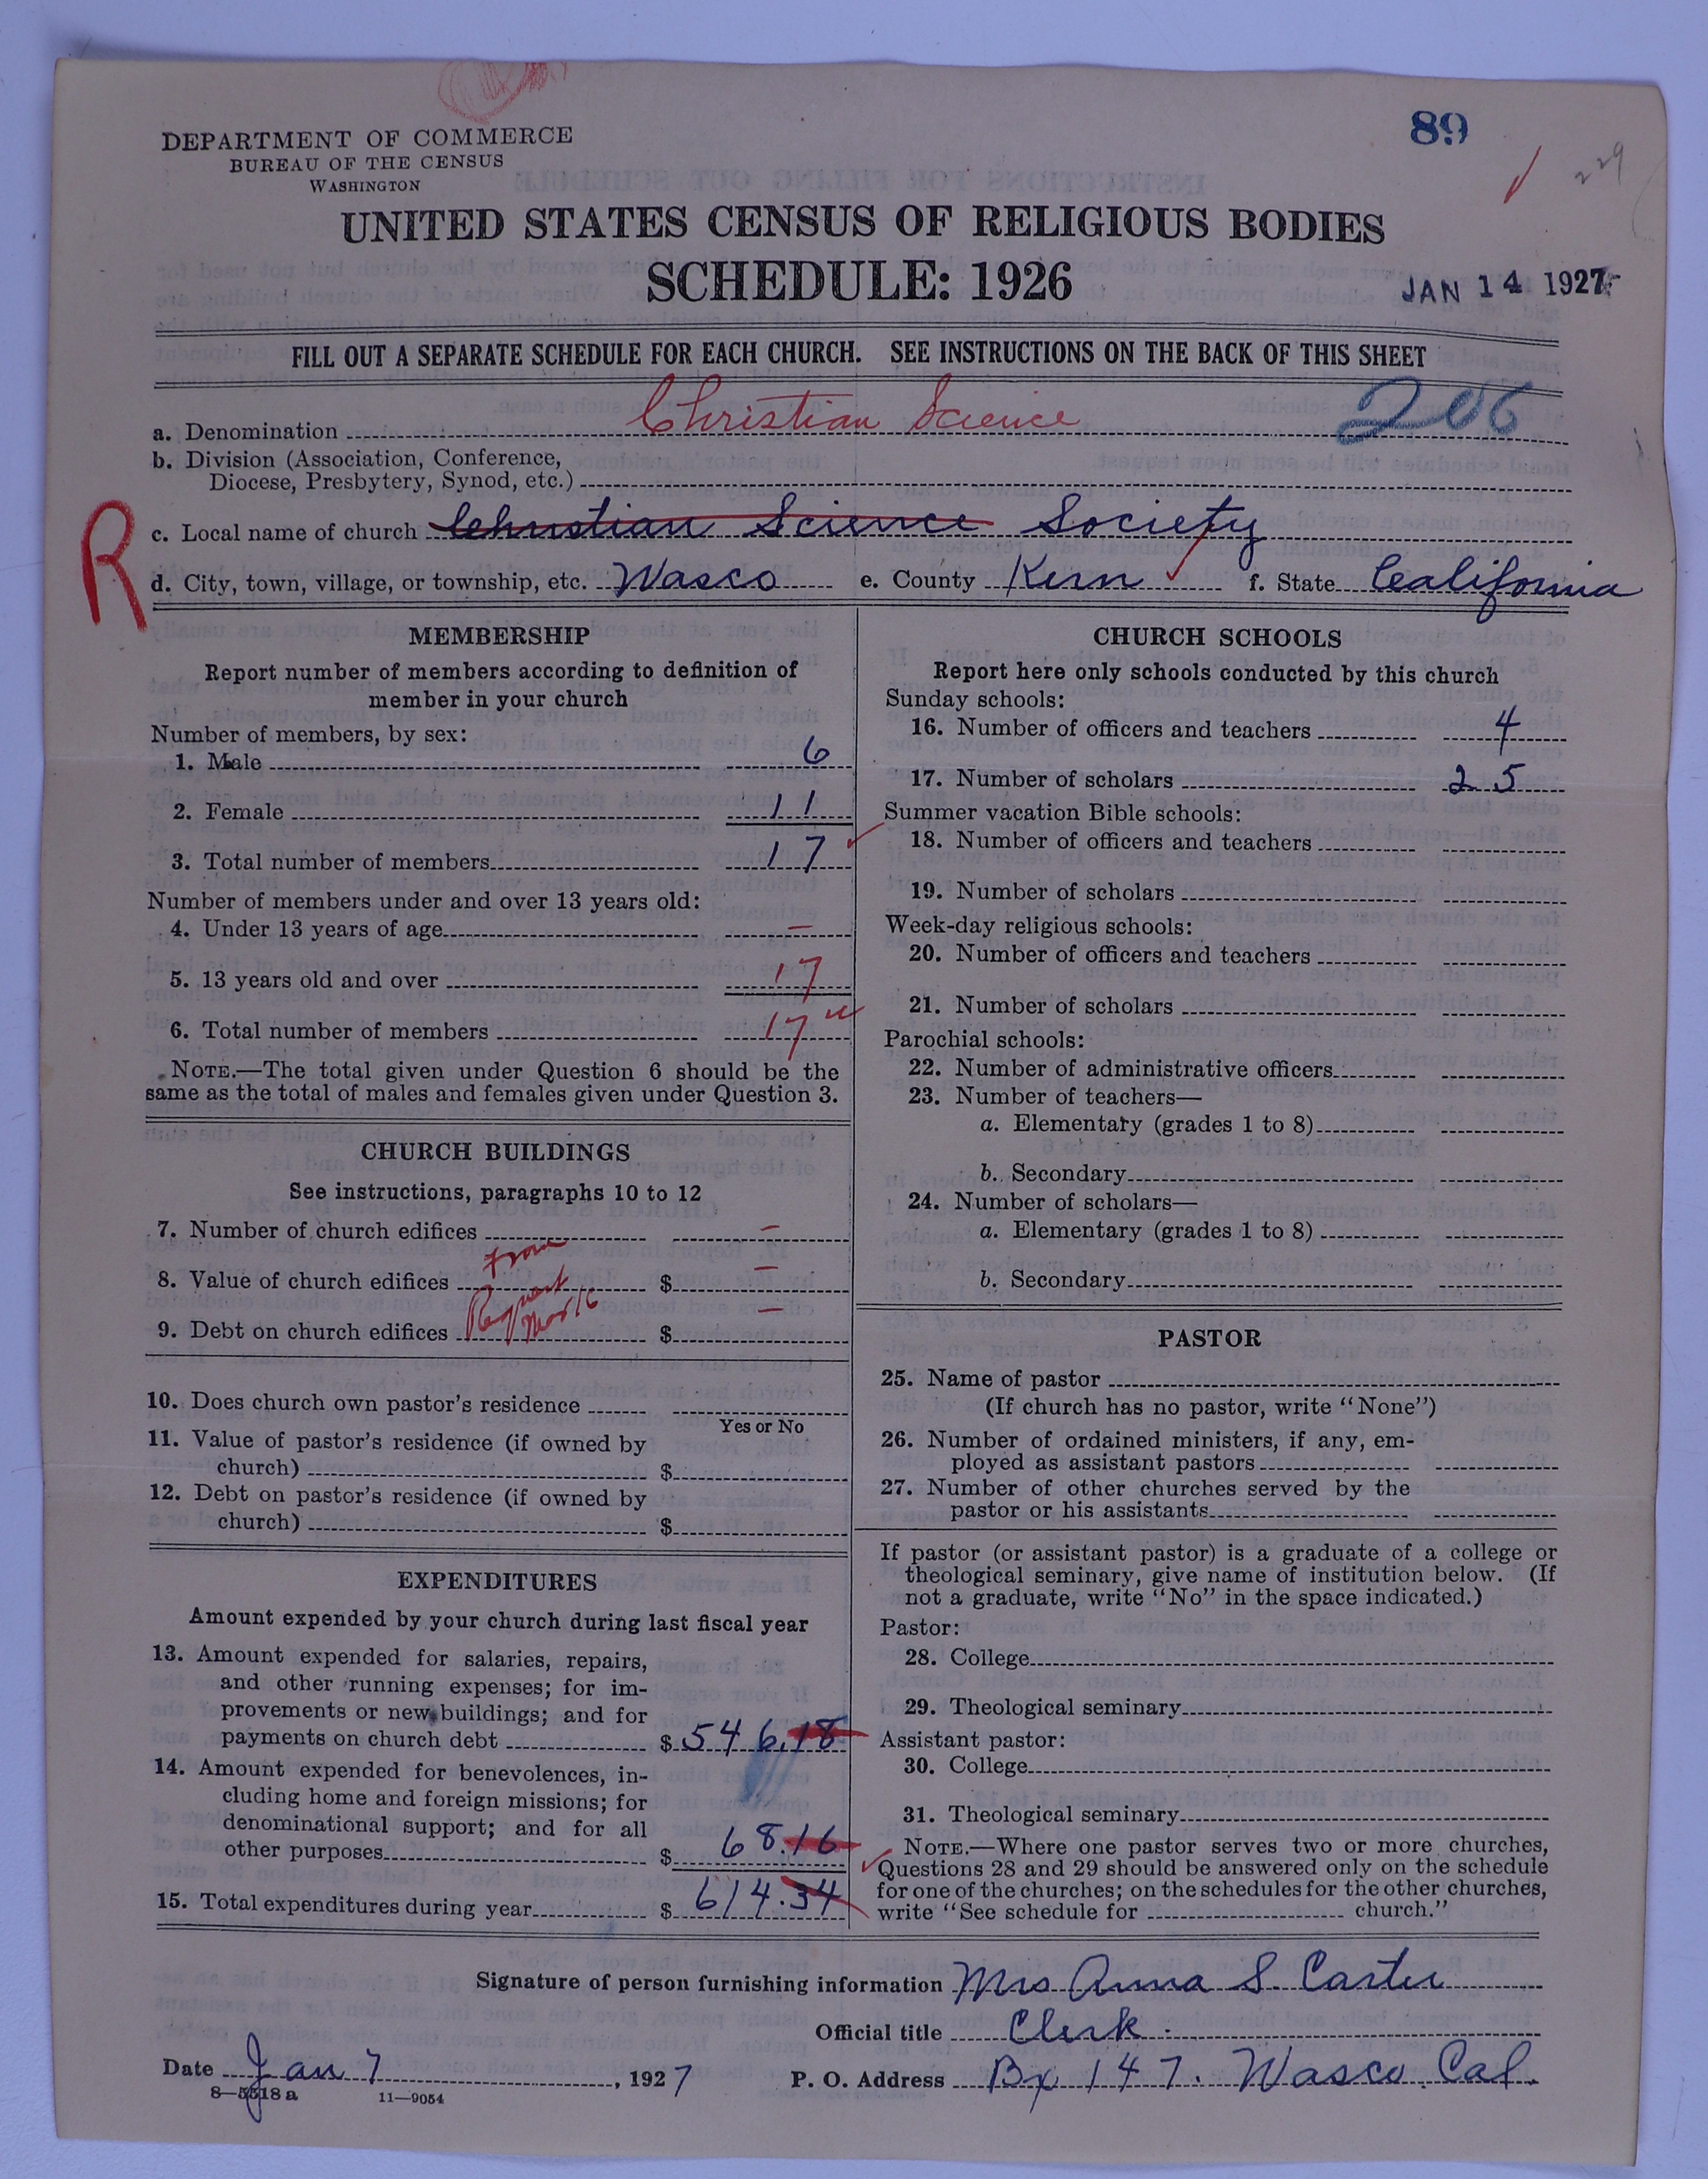 89
229
DEPARTMENT OF COMMERCE
BUREAU OF THE CENSUS
WASHINGTON
UNITED STATES CENSUS OF RELIGIOUS BODIES
SCHEDULE: 1926
JAN 14 1927
FILL OUT A SEPARATE SCHEDULE FOR EACH CHURCH. SEE INSTRUCTIONS ON THE BACK OF THIS SHEET
a. Denomination Christian Science 206
b. Division (Association, Conference,
Diocese, Presbytery, Synod, etc.)
R
c. Local name of church Christian Science Society
d. City, town, village, or township, etc. Wasco e. County Kern f. State California
MEMBERSHIP
Report number of members according to definition of
member in your church
Number of members, by sex:
1. Male 6
2. Female 11
3. Total number of members 17
Number of members under and over 13 years old:
4. Under 13 years of age –
5. 13 years old and over 17
6. Total number of members 17
NOTE.—The total given under Question 6 should be the
same as the total of males and females given under Question 3.
CHURCH BUILDINGS
See instructions, paragraphs 10 to 12
7. Number of church edifices –
From
8. Value of church edifices $ –
9. Debt on church edifices $ –
10. Does church own pastor's residence
Yes or No
11. Value of pastor's residence (if owned by
church) $
12. Debt on pastor's residence (if owned by
church) $
EXPENDITURES
Amount expended by your church during last fiscal year
13. Amount expended for salaries, repairs,
and other running expenses; for im-
provements or new buildings; and for
payments on church debt $ 546.18
14. Amount expended for benevolences, in-
cluding home and foreign missions; for
denominational support; and for all
other purposes $ 68.16
15. Total expenditures during year $ 614.34
CHURCH SCHOOLS
Report here only schools conducted by this church
Sunday schools:
16. Number of officers and teachers 4
17. Number of scholars 25
Summer vacation Bible schools:
18. Number of officers and teachers
19. Number of scholars
Week-day religious schools:
20. Number of officers and teachers
21. Number of scholars
Parochial schools:
22. Number of administrative officers
23. Number of teachers—
a. Elementary (grades 1 to 8)
b. Secondary
24. Number of scholars—
a. Elementary (grades 1 to 8)
b. Secondary
PASTOR
25. Name of pastor
(If church has no pastor, write "None")
26. Number of ordained ministers, if any, em-
ployed as assistant pastors
27. Number of other churches served by the
pastor or his assistants
If pastor (or assistant pastor) is a graduate of a college or
theological seminary, give name of institution below. (If
not a graduate, write "No" in the space indicated.)
Pastor:
28. College
29. Theological seminary
Assistant pastor:
30. College
31. Theological seminary
NOTE.—Where one pastor serves two or more churches,
Questions 28 and 29 should be answered only on the schedule
for one of the churches; on the schedules for the other churches,
write "See schedule for church."
Signature of person furnishing information Mrs Anna S Carter
Official title Clerk.
Date Jan 7, 1927 P. O. Address Bx 147. Wasco. Cal.
8—5518 a 11—9054